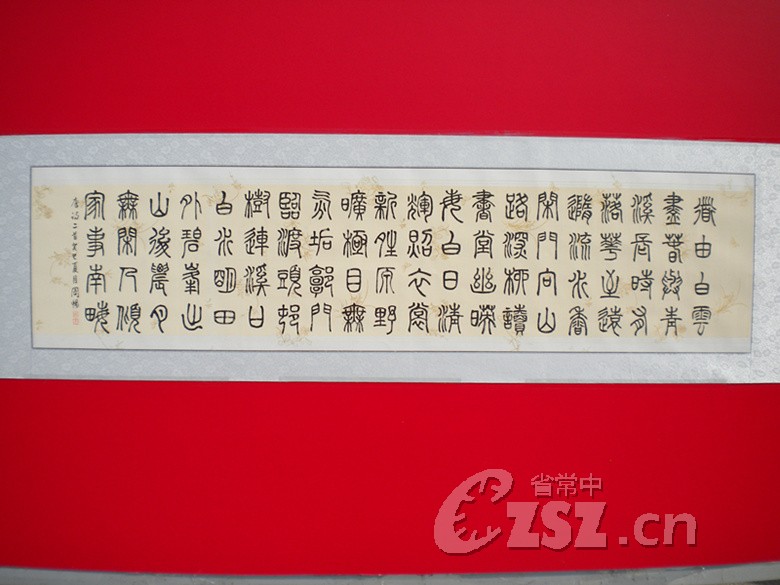 道由白雲
盡春與青
溪長時有
落華至遠
隨流水香
閑門向山
路深柳讀
書堂幽映
每白日清
輝照衣裳
新晴原野
曠極目無
氛垢郭門
臨渡頭村
樹連溪口
白水明田
外碧峯出
山後農月
無閑人傾
家事南畝
唐詩二首癸巳夏月
省常中
CZSZ.cn